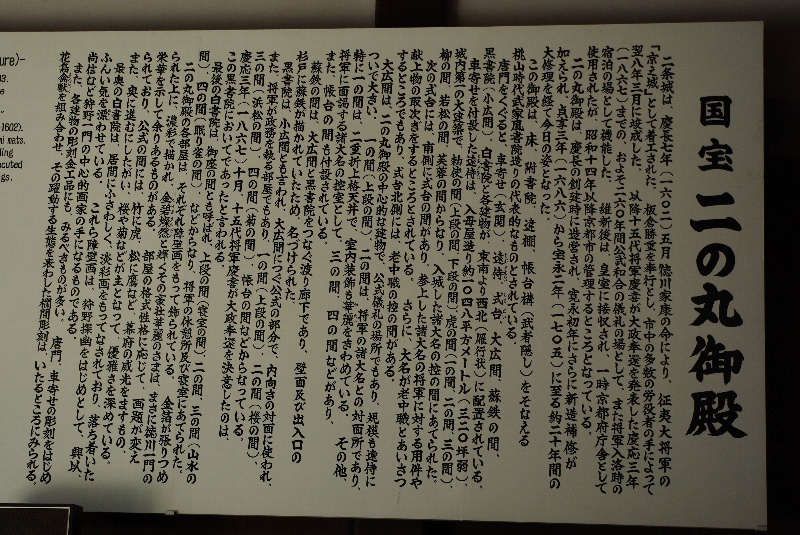 国宝 二の丸御殿
二条城は、慶長七年（一六〇二）五月 徳川家康の命により、征夷大将軍の
「京之城」として着工された。板倉勝重を奉行とし、市中の多数の労役者の手によって
翌八年三月に竣成した。以降十五代将軍慶喜が大政奉還を発表した慶応三年
（一八六七）までの、およそ二六〇年間公武和合の儀礼の場として、また将軍入洛時の
宿泊の場として機能した。維新後は、皇室に接収され、一時京都府庁舎として
使用されたが、昭和十四年以降京都市の管理するところとなっている。
二の丸御殿は、慶長の創建時に造営され、寛永初年にさらに新造補修が
加えられ、貞享三年（一六八六）から宝永二年（一七〇五）に至る約二十年間の
大修理を経て今日の姿となった。
この御殿は、床、附書院、違棚、帳台構（武者隠し）をそなえる
桃山時代武家風書院造りの代表的なものとされている。
唐門をくぐると、車寄せ（玄関）、遠侍、式台、大広間、蘇鉄の間、
黒書院（小広間）、白書院と各建物が、東南より西北（雁行状）に配置されている。
車寄せを付設した遠侍は、入母屋造り約一〇四八平方メートル（三二〇坪弱）、
城内第一の大建築で、勅使の間（上段の間 下段の間）、虎の間（一の間、二の間、三の間）、
柳の間、若松の間、芙蓉の間からなり、入城した諸大名の控の間にあてられた。
次の式台には、南側に式台の間があり、参上した諸大名の将軍に対する用件や
献上物の取次ぎをするところとされている。さらに、大名が老中職とあいさつ
するところでもあり、式台北側には、老中職の控の間がある。
大広間は、二の丸御殿の中心的な建物で、公式儀礼の場所でもあり、規模も遠侍に
ついで大きい。一の間（上段の間）、二の間は、将軍の諸大名との対面所であり、
特に一の間は、二重折上格天井で、室内装飾も華麗をきわめている。その他、
将軍に面謁する諸大名の控室として、三の間、四の間などがあり、
また、帳台の間も付設される。
蘇鉄の間は、大広間と黒書院をつなぐ渡り廊下であり、壁面及び出入口の
杉戸に蘇鉄が描かれていたため、名づけられた。
黒書院は、小広間とも言われ、大広間につぐ公式の部分で、内向きの対面に使われ、
また、将軍が政務を執る部屋でもあり、一の間（上段の間）、二の間（桜の間）、
三の間（浜松の間）、四の間（菊の間）、帳台の間などからなっている。
慶応三年（一八六七）十月、十五代将軍慶喜が大政奉還を決意したのは、
この黒書院においてであったと言われる。
最後の白書院は、御座の間とも呼ばれ、上段の間（寝室の間）、二の間、三の間（山水の
間）、四の間（眠り雀の間）などからなり、将軍の休憩所及び寝室にあてられた。
二の丸御殿の各部屋は、それぞれ障壁画をもって飾られている。金箔が張りつめ
られた上に、濃彩で描かれ、金碧燦然と輝くその豪壮華麗のさまは、まさに徳川一門の
栄華を示して余りあるものがある。部屋の格式性格に応じて、画題が変え
られており、公式の間には、竹に虎、松に鷹など、幕府の威光をますもの、
また、奥に進むにしたがい、桜や菊などが主となって、優雅さを深めている。
最奥の白書院は、居間にふさわしく、淡彩画をもってなされており、落ち着いた
ふんい気を漂わせている。これら障壁画は、狩野探幽をはじめとして、興以、
尚信など狩野一門の中心的画家の手になるものである。
また、各建物の彫刻金工品にも、みるべきものが多い。唐門、車寄せの彫刻をはじめ
花鳥禽獣を組み合わせ、その躍動する生態を表わした欄間彫刻は、いたるところにみられる。
ure)-
-1602).
mi mats.
ding
ecuted
gs.